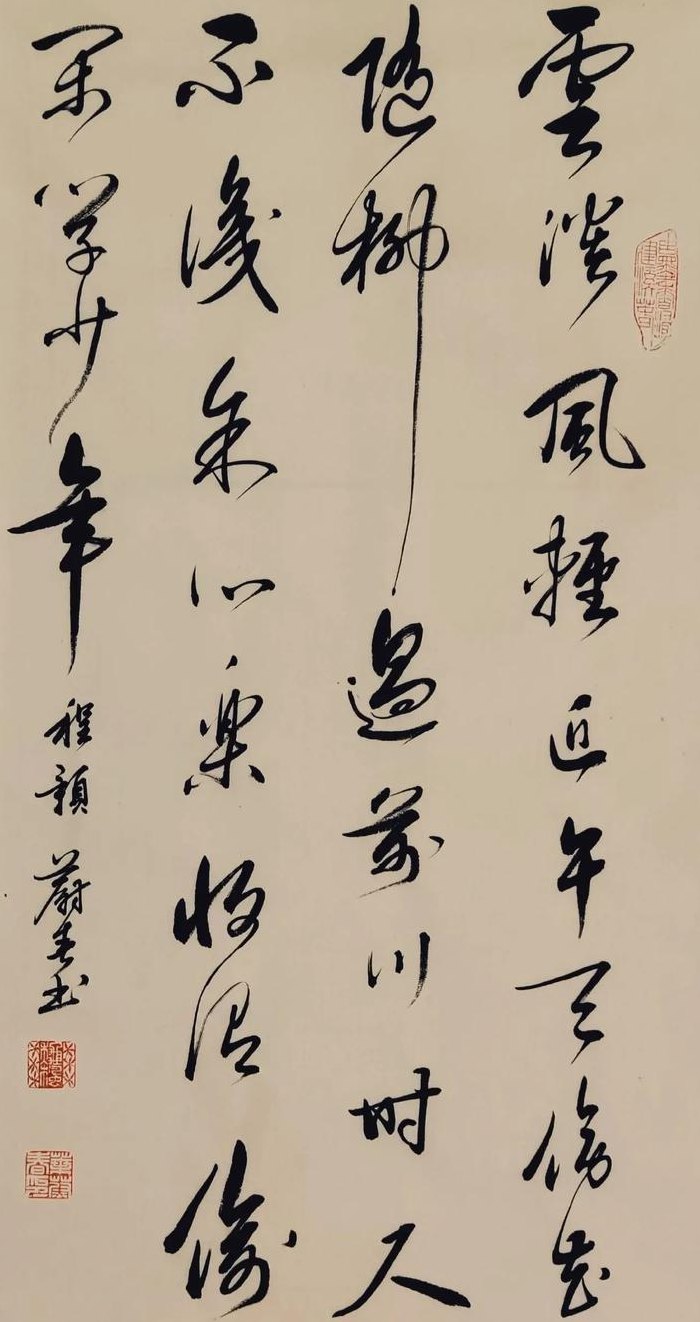 雲淡風輕近午天傍花
隨柳過前川时人
不識余心樂將謂偷
閑學少年 程顥 蔚春书
華蔚春印